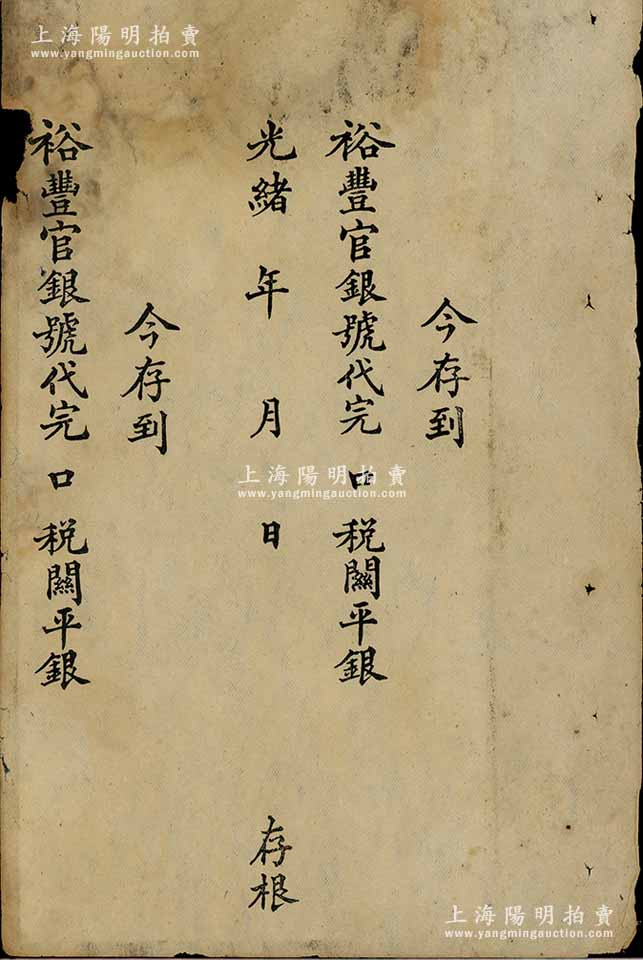 上海陽明拍賣
www.yangmingauction.com
上海陽明拍賣
www.yangmingauction.com
今存到
裕豐官銀號代完 口 稅關平銀
光緒 年 月 日 存根
今存到
裕豐官銀號代完 口 稅關平銀
上海陽明拍賣
www.yangmingauction.com
上海陽明拍賣
www.yangmingauction.com